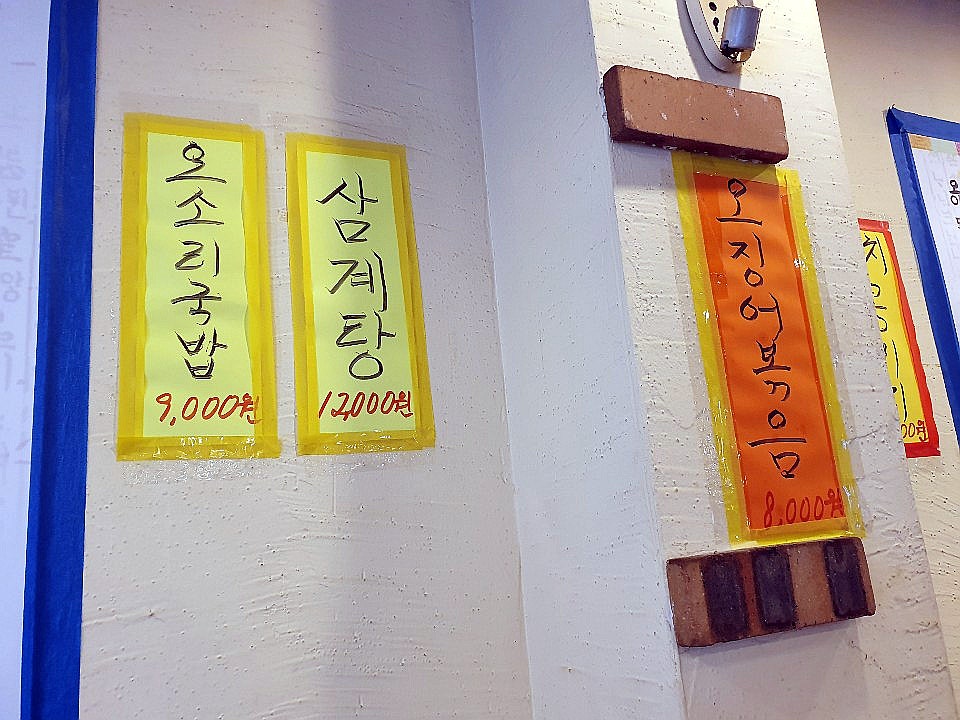 오소리국밥
9,000원
삼계탕
12,000원
오징어볶음
8,000원